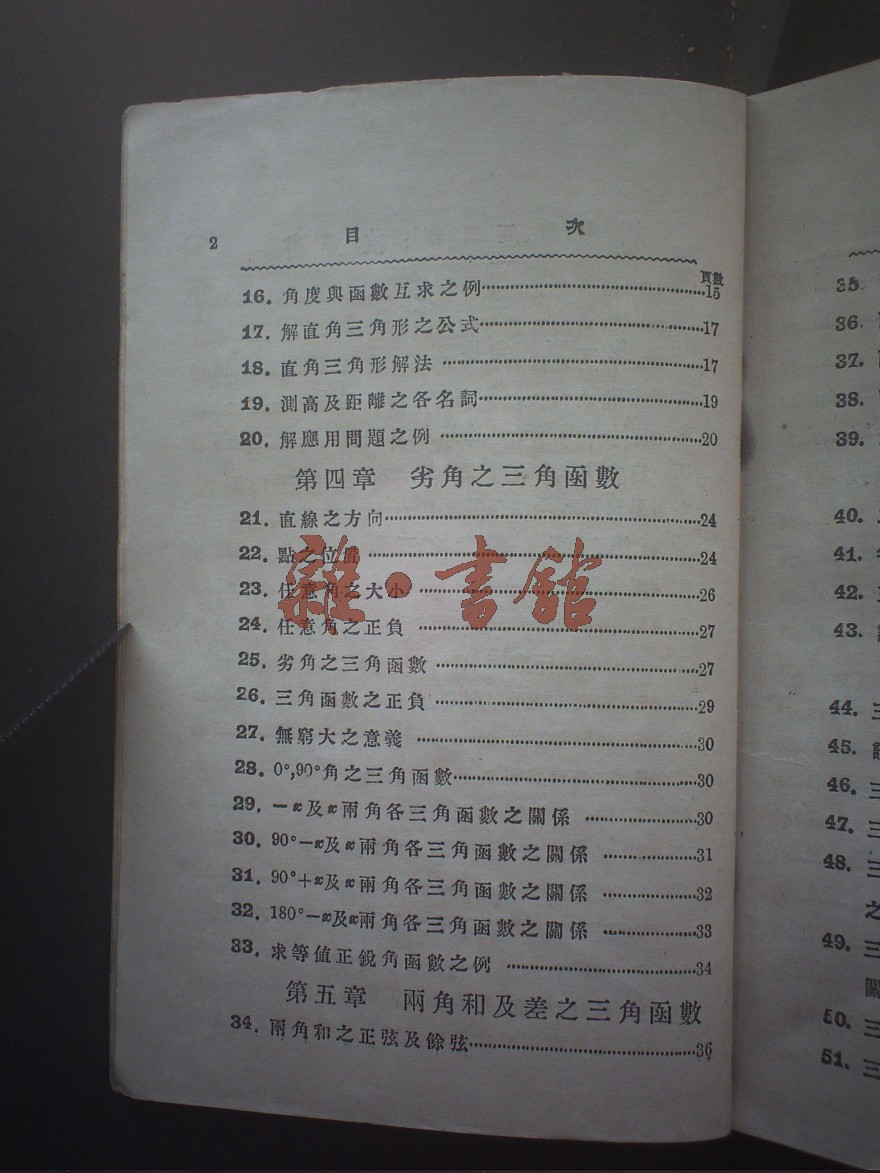 2 目 次
頁數
16. 角度與函數互求之例……15
17. 解直角三角形之公式……17
18. 直角三角形解法……17
19. 測高及距離之各名詞……19
20. 解應用問題之例……20
第四章 劣角之三角函數
21. 直線之方向……24
22. 點之位置……24
23. 任意角之大小……26
24. 任意角之正負……27
25. 劣角之三角函數……27
26. 三角函數之正負……29
27. 無窮大之意義……30
28. 0°,90°角之三角函數……30
29. －x及x兩角各三角函數之關係……30
30. 90°－x及x兩角各三角函數之關係……31
31. 90°＋x及x兩角各三角函數之關係……32
32. 180°－x及x兩角各三角函數之關係……33
33. 求等値正銳角函數之例……34
第五章 兩角和及差之三角函數
34. 兩角和之正弦及餘弦……36
雜·書館
35.
36.
37.
38.
39.
40.
41.
42.
43.
44. 三
45.
46. 三
47. 三
48. 三
之
49. 三
關
50. 三
51. 三